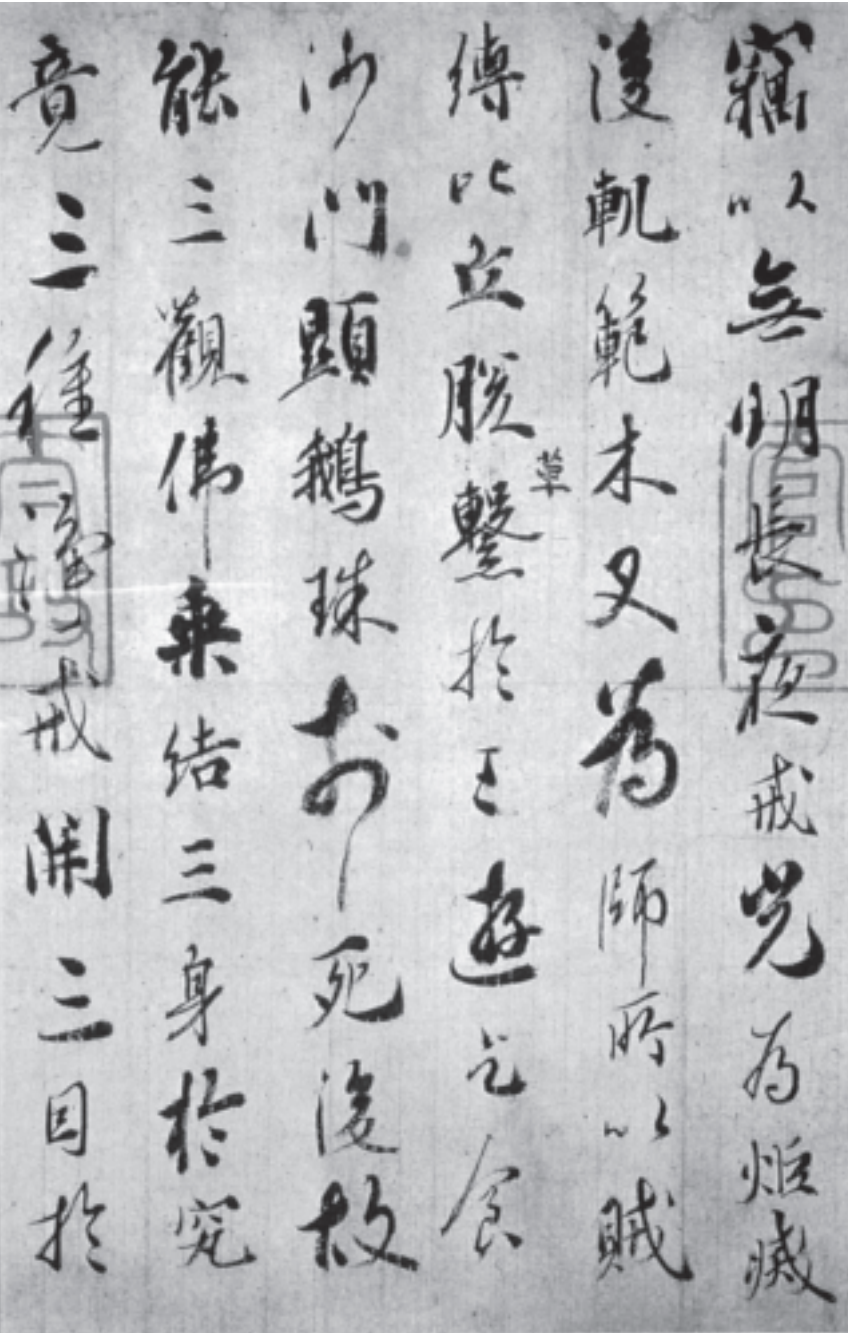 竊以無明長夜戒光為炬滅
後軌範木叉為師所以賊
縛比丘脱繫草於王遊乞食
沙門顕鵝珠於死後故
能三觀佛乗結三身於究
竟三種浄戒開三目於